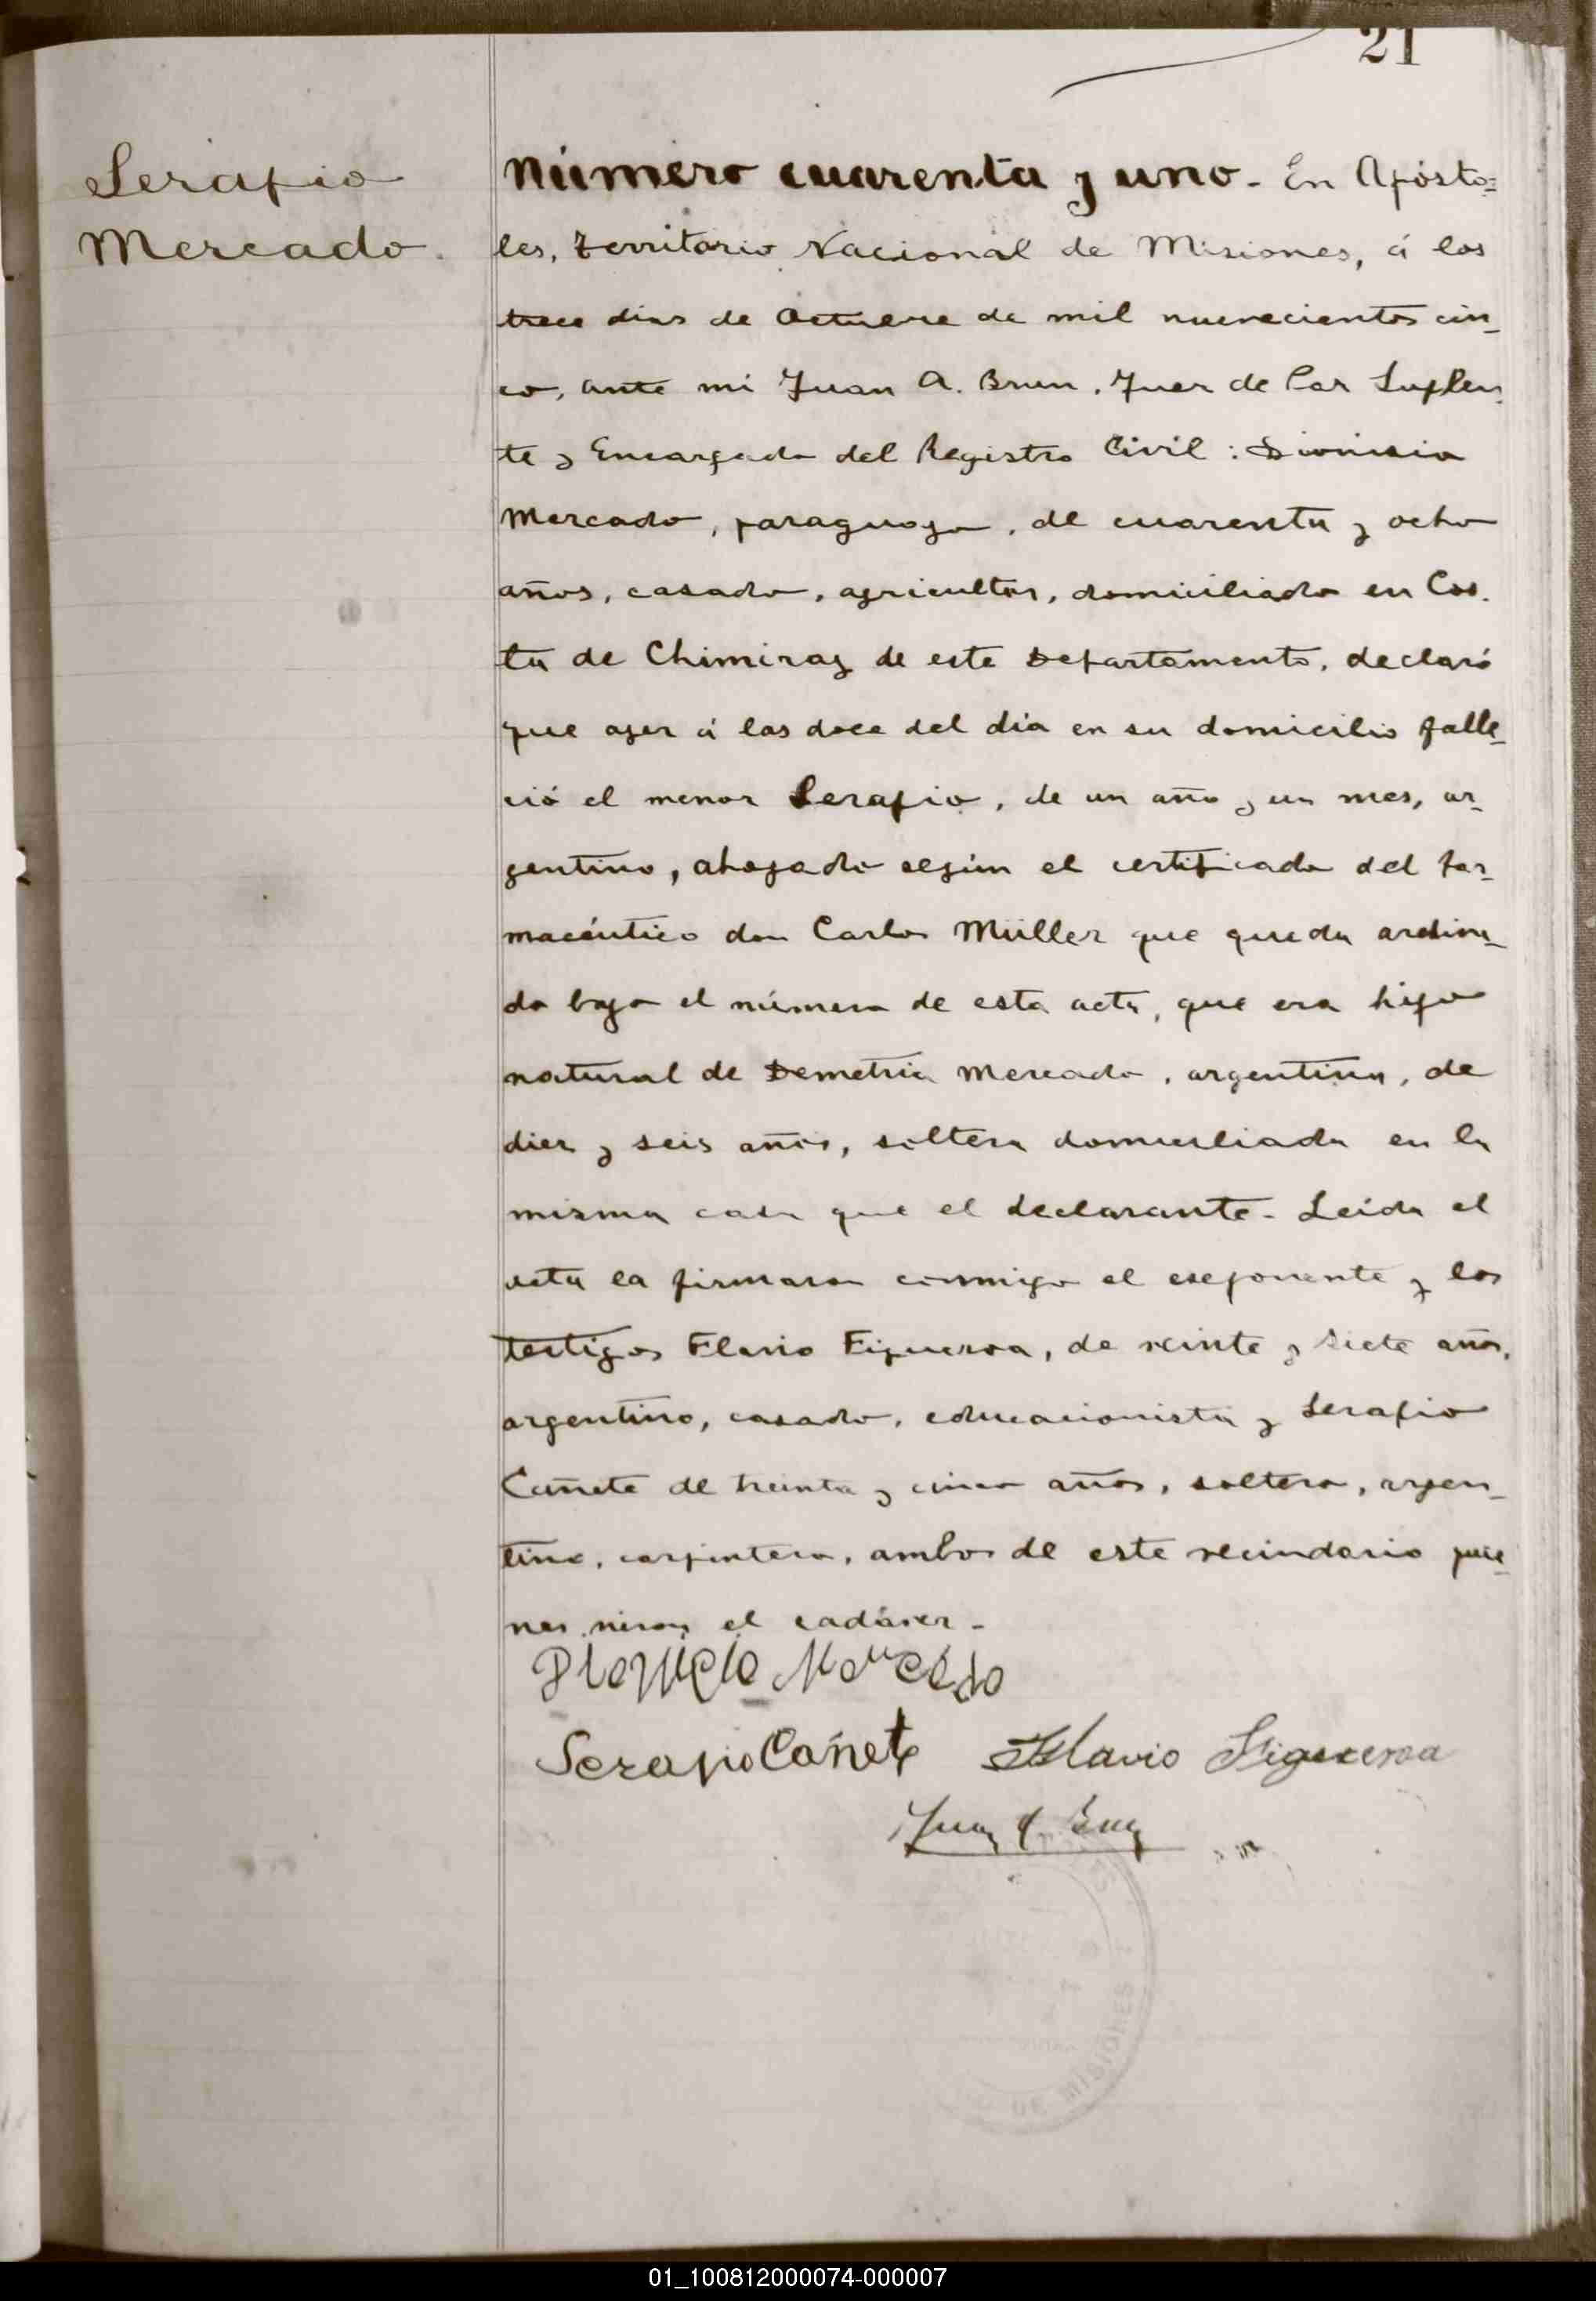 21
Serapio
Mercado.
Número cuarenta y uno. En Apósto=
les, Territorio Nacional de Misiones, á los
trece dias de Octubre de mil novecientos cin-
co, ante mi Juan A. Brun, Juez de Paz Suplen-
te y Encargado del Registro Civil: Dionisio
Mercado, paraguayo, de cuarenta y ocho
años, casado, agricultor, domiciliado en Cos-
ta de Chimiray de este Departamento, declaró
que ayer á las doce del día en su domicilio falle-
ció el menor Serapio, de un año y un mes, ar-
gentino, ahogado según el certificado del far-
macéutico don Carlos Müller que queda archiva-
do bajo el número de esta acta, que era hijo
natural de Demetria Mercado, argentina, de
diez y seis años, soltera domiciliada en la
misma casa que el declarante. Leida el
acta la firmaron conmigo el exponente y los
testigos Flavio Figueroa, de veinte y siete años,
argentino, casado, educacionista y Serapio
Cañete de treinta y cinco años, soltero, argen-
tino, carpintero, ambos de este vecindario quie-
nes el cadáver.
Dionicio Mercado
Serapio Cañete Flavio Figueroa
Juan A. Brun
DE MISIONES
01_100812000074-000007